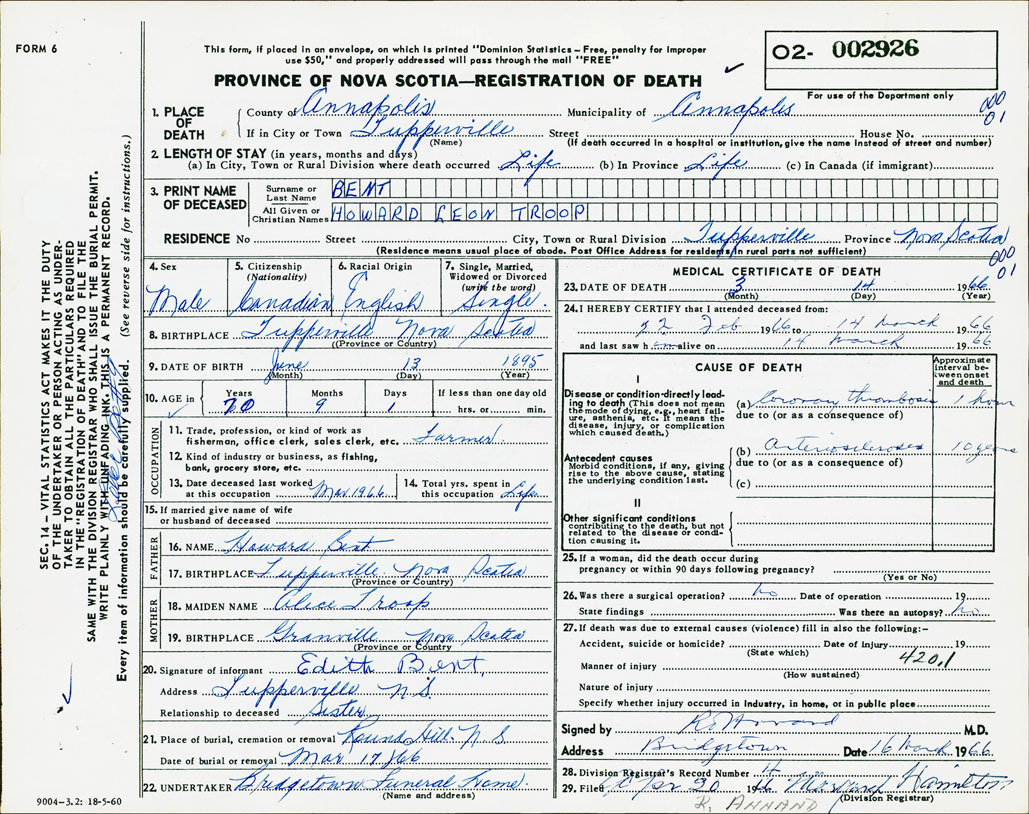 FORM 6
This form, if placed in an envelope, on which is printed "Dominion Statistics – Free, penalty for improper
use $50," and properly addressed will pass through the mail "FREE"
PROVINCE OF NOVA SCOTIA—REGISTRATION OF DEATH
02- 002926
For use of the Department only
1. PLACE OF DEATH
County of Annapolis Municipality of Annapolis
000
01
If in City or Town Tupperville Street House No.
(Name) (If death occurred in a hospital or institution, give the name instead of street and number)
2. LENGTH OF STAY (in years, months and days)
(a) In City, Town or Rural Division where death occurred Life (b) In Province Life (c) In Canada (if immigrant)
3. PRINT NAME OF DECEASED
Surname or Last Name BENT
All Given or Christian Names HOWARD LEON TROOP
RESIDENCE No Street City, Town or Rural Division Tupperville Province Nova Scotia
(Residence means usual place of abode. Post Office Address for residents in rural parts not sufficient)
000
01
4. Sex
Male
5. Citizenship
(Nationality)
Canadian
6. Racial Origin
English
7. Single, Married,
Widowed or Divorced
(write the word)
Single.
8. BIRTHPLACE Tupperville Nova Scotia
(Province or Country)
9. DATE OF BIRTH June 13 1895
(Month) (Day) (Year)
10. AGE in
Years Months Days If less than one day old
70 9 1 hrs. or min.
OCCUPATION
11. Trade, profession, or kind of work as
fisherman, office clerk, sales clerk, etc. Farmer
12. Kind of industry or business, as fishing,
bank, grocery store, etc.
13. Date deceased last worked
at this occupation Mar. 1966
14. Total yrs. spent in
this occupation Life
15. If married give name of wife
or husband of deceased
FATHER
16. NAME Howard Bent
17. BIRTHPLACE Tupperville Nova Scotia
(Province or Country)
MOTHER
18. MAIDEN NAME Alice Troop
19. BIRTHPLACE Granville Nova Scotia
(Province or Country
20. Signature of informant Edith Bent,
Address Tupperville N.S.
Relationship to deceased Sister
21. Place of burial, cremation or removal Round Hill N.S
Date of burial or removal Mar 17/66
22. UNDERTAKER Bridgetown Funeral Home.
(Name and address)
9004-3.2: 18-5-60
MEDICAL CERTIFICATE OF DEATH
23. DATE OF DEATH 3 14 1966
(Month) (Day) (Year)
24. I HEREBY CERTIFY that I attended deceased from:
22 Feb 1966 to 14 March 1966
and last saw h im alive on 14 March 1966
CAUSE OF DEATH
Approximate
interval be-
tween onset
and death
I
Disease or condition directly lead-
ing to death (This does not mean
the mode of dying, e.g., heart fail-
ure, asthenia, etc. It means the
disease, injury, or complication
which caused death.)
(a) Coronary thrombosis 1 hour
due to (or as a consequence of)
Antecedent causes
Morbid conditions, if any, giving
rise to the above cause, stating
the underlying condition last.
(b) Arteriosclerosis 10 years
due to (or as a consequence of)
(c)
II
Other significant conditions
contributing to the death, but not
related to the disease or condi-
tion causing it.
25. If a woman, did the death occur during
pregnancy or within 90 days following pregnancy?
(Yes or No)
26. Was there a surgical operation? No Date of operation 19
State findings Was there an autopsy? No
27. If death was due to external causes (violence) fill in also the following:–
Accident, suicide or homicide? Date of injury 19
(State which)
420.1
Manner of injury
(How sustained)
Nature of injury
Specify whether injury occurred in industry, in home, or in public place
Signed by M.D.
Address Bridgetown Date 16 March 1966
28. Division Registrar's Record Number 4
29. Filed Apr 30 1966 Hamilton
(Division Registrar)
R. ANNAND
SEC. 14 – VITAL STATISTICS ACT MAKES IT THE DUTY
OF THE UNDERTAKER OR PERSON ACTING AS UNDER-
TAKER TO OBTAIN ALL THE PARTICULARS REQUIRED
IN THE "REGISTRATION OF DEATH" AND TO FILE THE
SAME WITH THE DIVISION REGISTRAR WHO SHALL ISSUE THE BURIAL PERMIT.
WRITE PLAINLY WITH UNFADING INK. THIS IS A PERMANENT RECORD.
Every item of information should be carefully supplied. (See reverse side for instructions.)